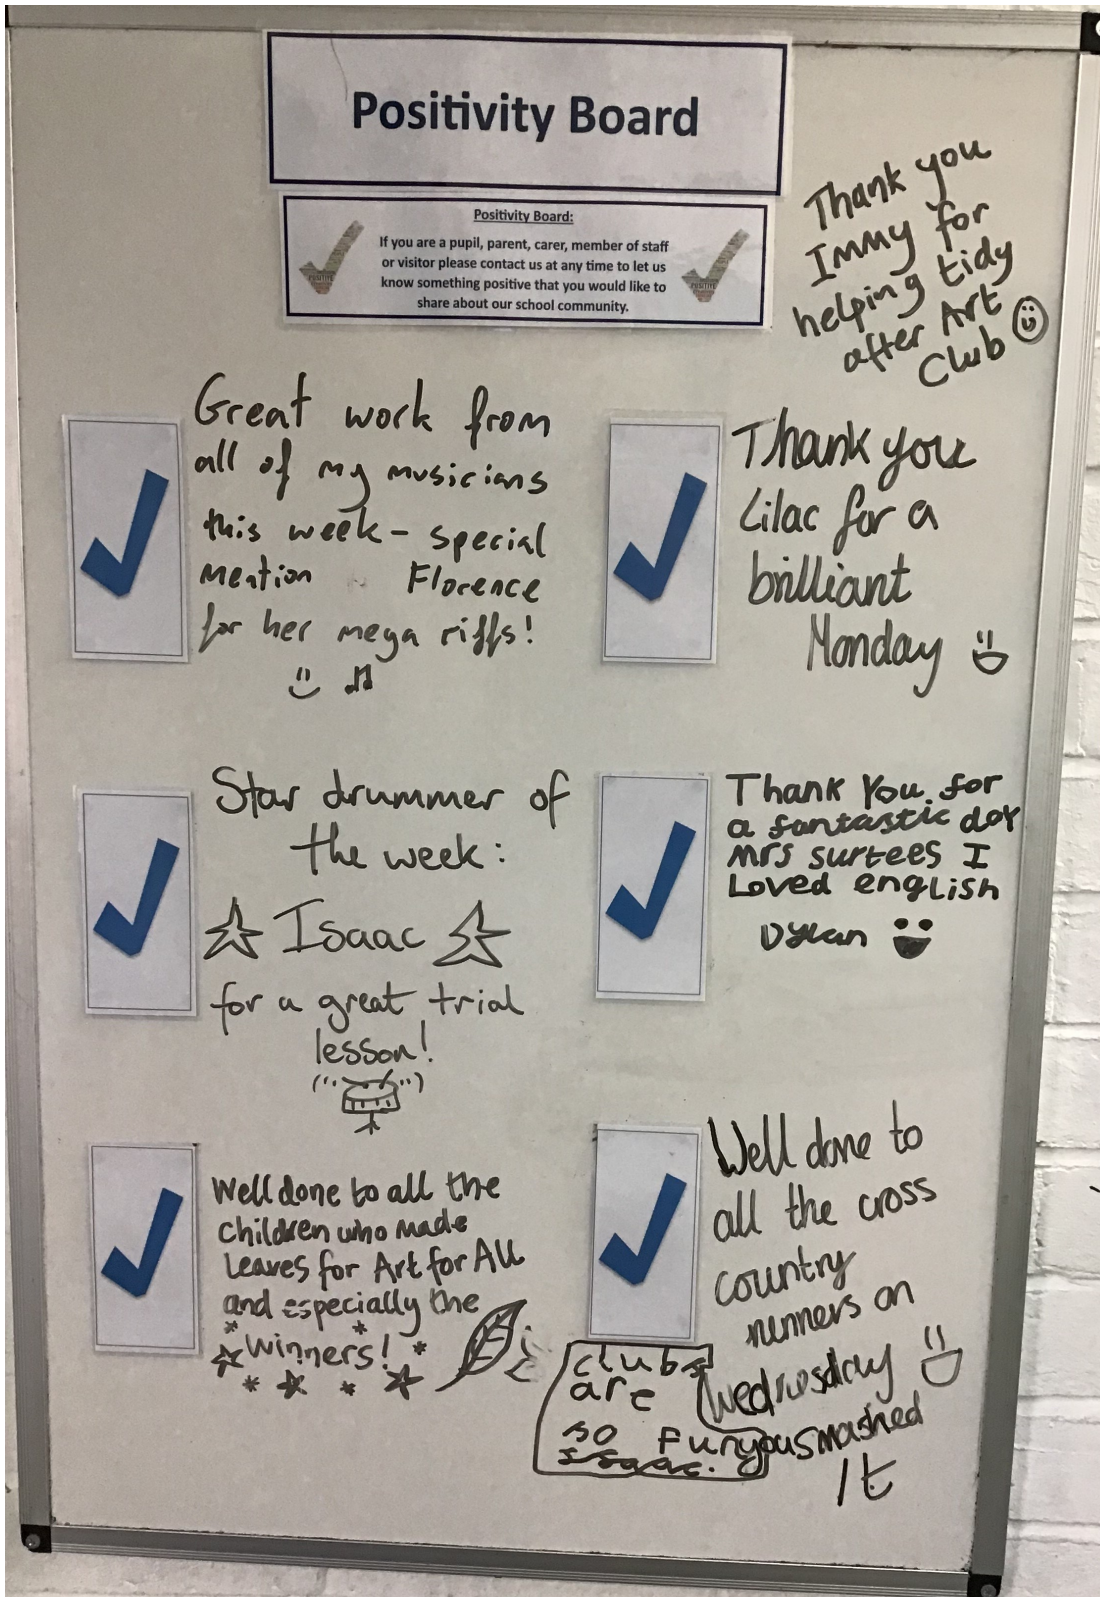 Positivity Board
Positivity Board:
If you are a pupil, parent, carer, member of staff
or visitor please contact us at any time to let us
know something positive that you would like to
share about our school community.
Thank you
Immy for
helping tidy
after Art
Club
Great work from
all of my musicians
this week – special
mention Florence
for her mega riffs!
Thank you
Lilac for a
brilliant
Monday
Star drummer of
the week:
Isaac
for a great trial
lesson!
Thank You for
a fantastic day
Mrs surtees I
Loved english
Dylan
Well done to all the
children who made
leaves for Art for All
and especially the
winners!
Well done to
all the cross
country
runners on
Wednesday
you smashed
It
clubs
are
so Fun
Isaac.